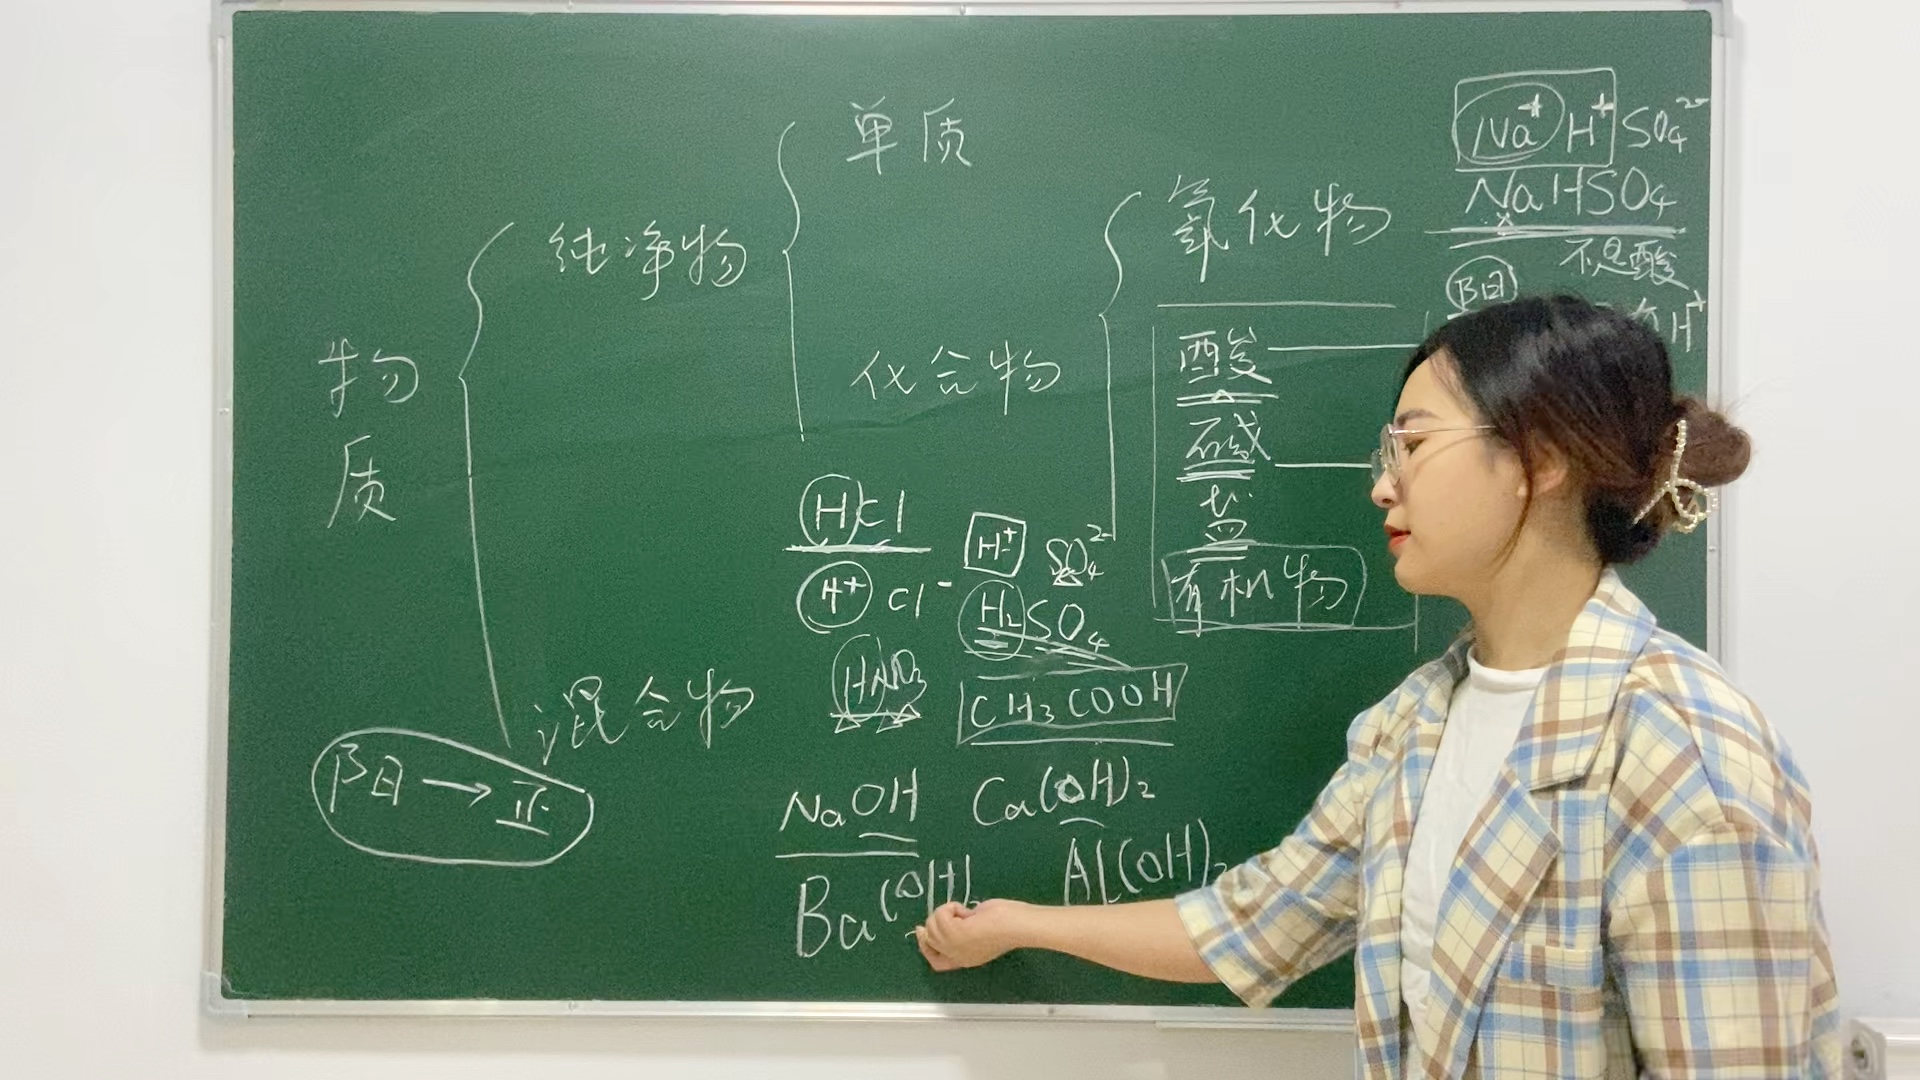 物质
纯净物
混合物
阳→正
单质
化合物
氧化物
酸
碱
盐
有机物
HCl
H⁺ Cl⁻
HNO₃
H⁺ SO₄²⁻
H₂SO₄
CH₃COOH
NaOH Ca(OH)₂
Ba(OH)₂ Al(OH)
Na⁺ H⁺ SO₄²⁻
NaHSO₄
不是酸
阳
H⁺